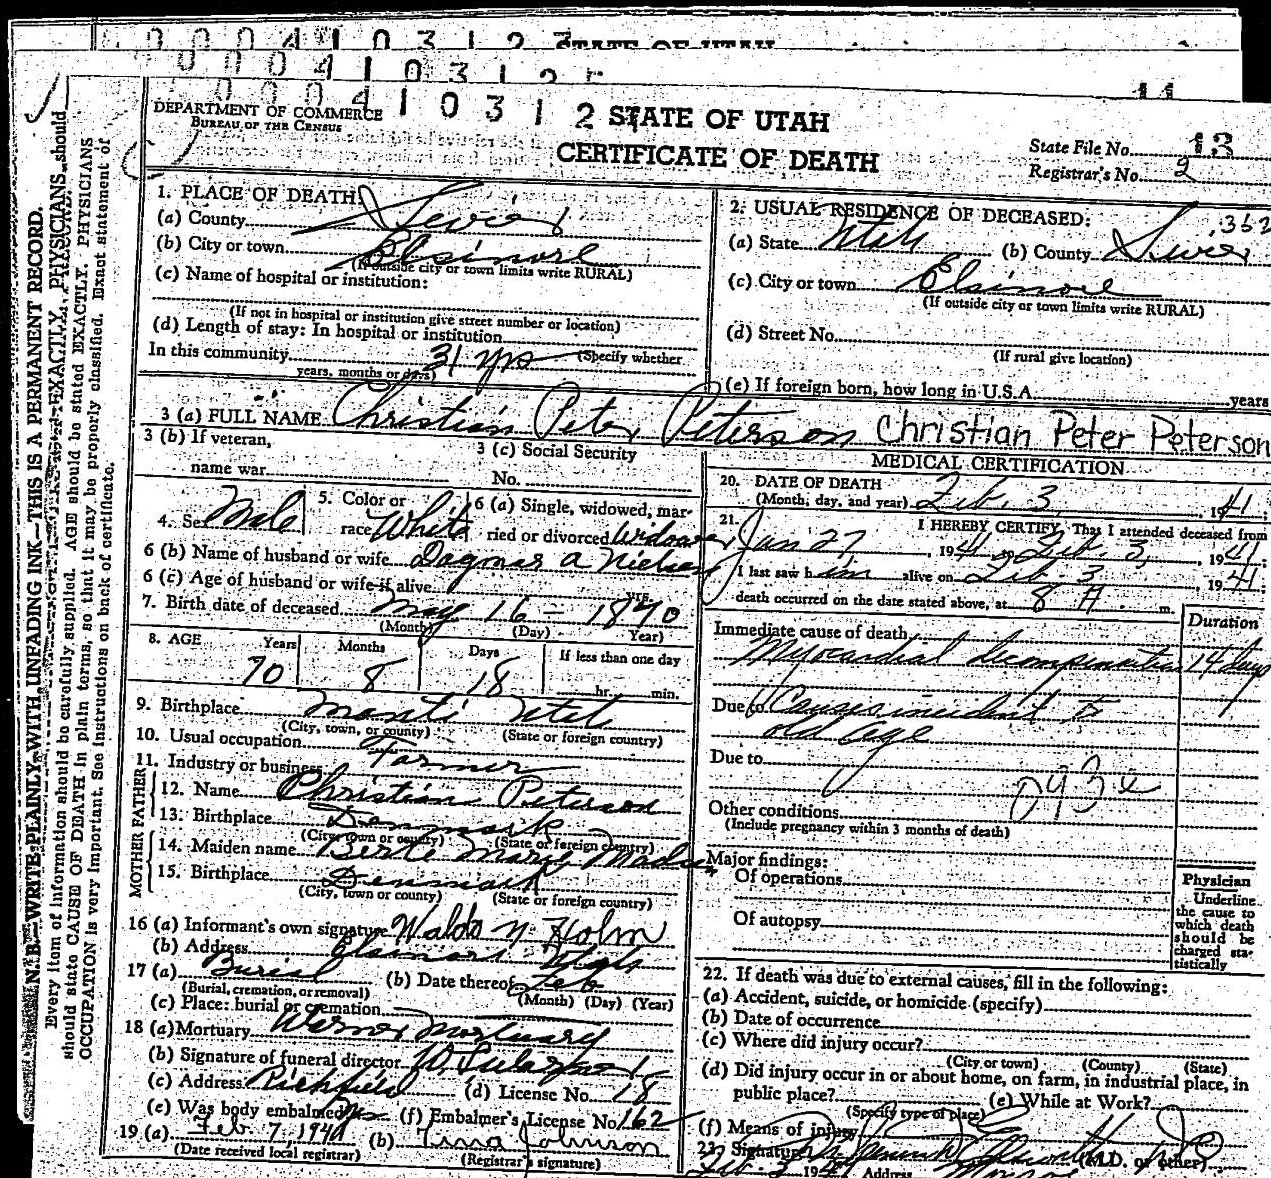 0 0 0 4 1 0 3 1 2
STATE OF UTAH
0 0 0 4 1 0 3 1 2
11
0 0 0 4 1 0 3 1 2
DEPARTMENT OF COMMERCE
BUREAU OF THE CENSUS
STATE OF UTAH
CERTIFICATE OF DEATH
State File No. 13
Registrar's No. 2
N.B.—WRITE PLAINLY WITH UNFADING INK—THIS IS A PERMANENT RECORD.
Every item of information should be carefully supplied. AGE should be stated EXACTLY. PHYSICIANS should
should state CAUSE OF DEATH in plain terms, so that it may be properly classified. Exact statement of
OCCUPATION is very important. See instructions on back of certificate.
1. PLACE OF DEATH:
(a) County Sevier
(b) City or town Elsinore
(If outside city or town limits write RURAL)
(c) Name of hospital or institution:
(If not in hospital or institution give street number or location)
(d) Length of stay: In hospital or institution
In this community 31 yrs (Specify whether
years, months or days)
2. USUAL RESIDENCE OF DECEASED: 352
(a) State Utah (b) County Sevier
(c) City or town Elsinore
(If outside city or town limits write RURAL)
(d) Street No.
(If rural give location)
(e) If foreign born, how long in U.S.A. years
3 (a) FULL NAME Christian Peter Peterson Christian Peter Peterson
3 (b) If veteran,
name war
3 (c) Social Security
No.
4. Sex Male
5. Color or
race White
6 (a) Single, widowed, mar-
ried or divorced Widower
6 (b) Name of husband or wife Dagmar A Nielsen
6 (c) Age of husband or wife if alive yrs.
7. Birth date of deceased May 16 - 1870
(Month) (Day) Year)
8. AGE Years Months Days If less than one day
70 8 18 hr. min.
9. Birthplace Manti Utah
(City, town, or county) (State or foreign country)
10. Usual occupation Farmer
11. Industry or business
FATHER
12. Name Christian Peterson
13. Birthplace Denmark
(City, town or county) (State or foreign country)
MOTHER
14. Maiden name Berte Marie
15. Birthplace Denmark
(City, town or county) (State or foreign country)
16 (a) Informant's own signature Waldo N Holm
(b) Address Elsinore Utah
17 (a) Burial (b) Date thereof Feb
(Burial, cremation, or removal) (Month) (Day) (Year)
(c) Place: burial or cremation
18 (a) Mortuary Warner Mortuary
(b) Signature of funeral director
(c) Address Richfield (d) License No. 18
(e) Was body embalmed Yes (f) Embalmer's License No. 162
19 (a) Feb 7, 1941 (b) Johnson
(Date received local registrar) (Registrar's signature)
MEDICAL CERTIFICATION
20. DATE OF DEATH
(Month, day, and year) Feb. 3, 1941
21. I HEREBY CERTIFY, That I attended deceased from
Jan 27, 1941, to Feb. 3, 1941.
I last saw him alive on Feb 3 1941.
death occurred on the date stated above, at 8 A. m.
Duration
Immediate cause of death
Myocardial decompensation 14 days
Due to Causes incident to
old age
Due to
093e
Other conditions
(Include pregnancy within 3 months of death)
Major findings:
Of operations
Of autopsy
Physician
Underline
the cause to
which death
should be
charged sta-
tistically
22. If death was due to external causes, fill in the following:
(a) Accident, suicide, or homicide (specify)
(b) Date of occurrence
(c) Where did injury occur?
(City or town) (County) (State)
(d) Did injury occur in or about home, on farm, in industrial place, in
public place? (e) While at Work?
(Specify type of place)
(f) Means of injury
23. Signature (M.D. or other)
Feb. 3 1941 Address